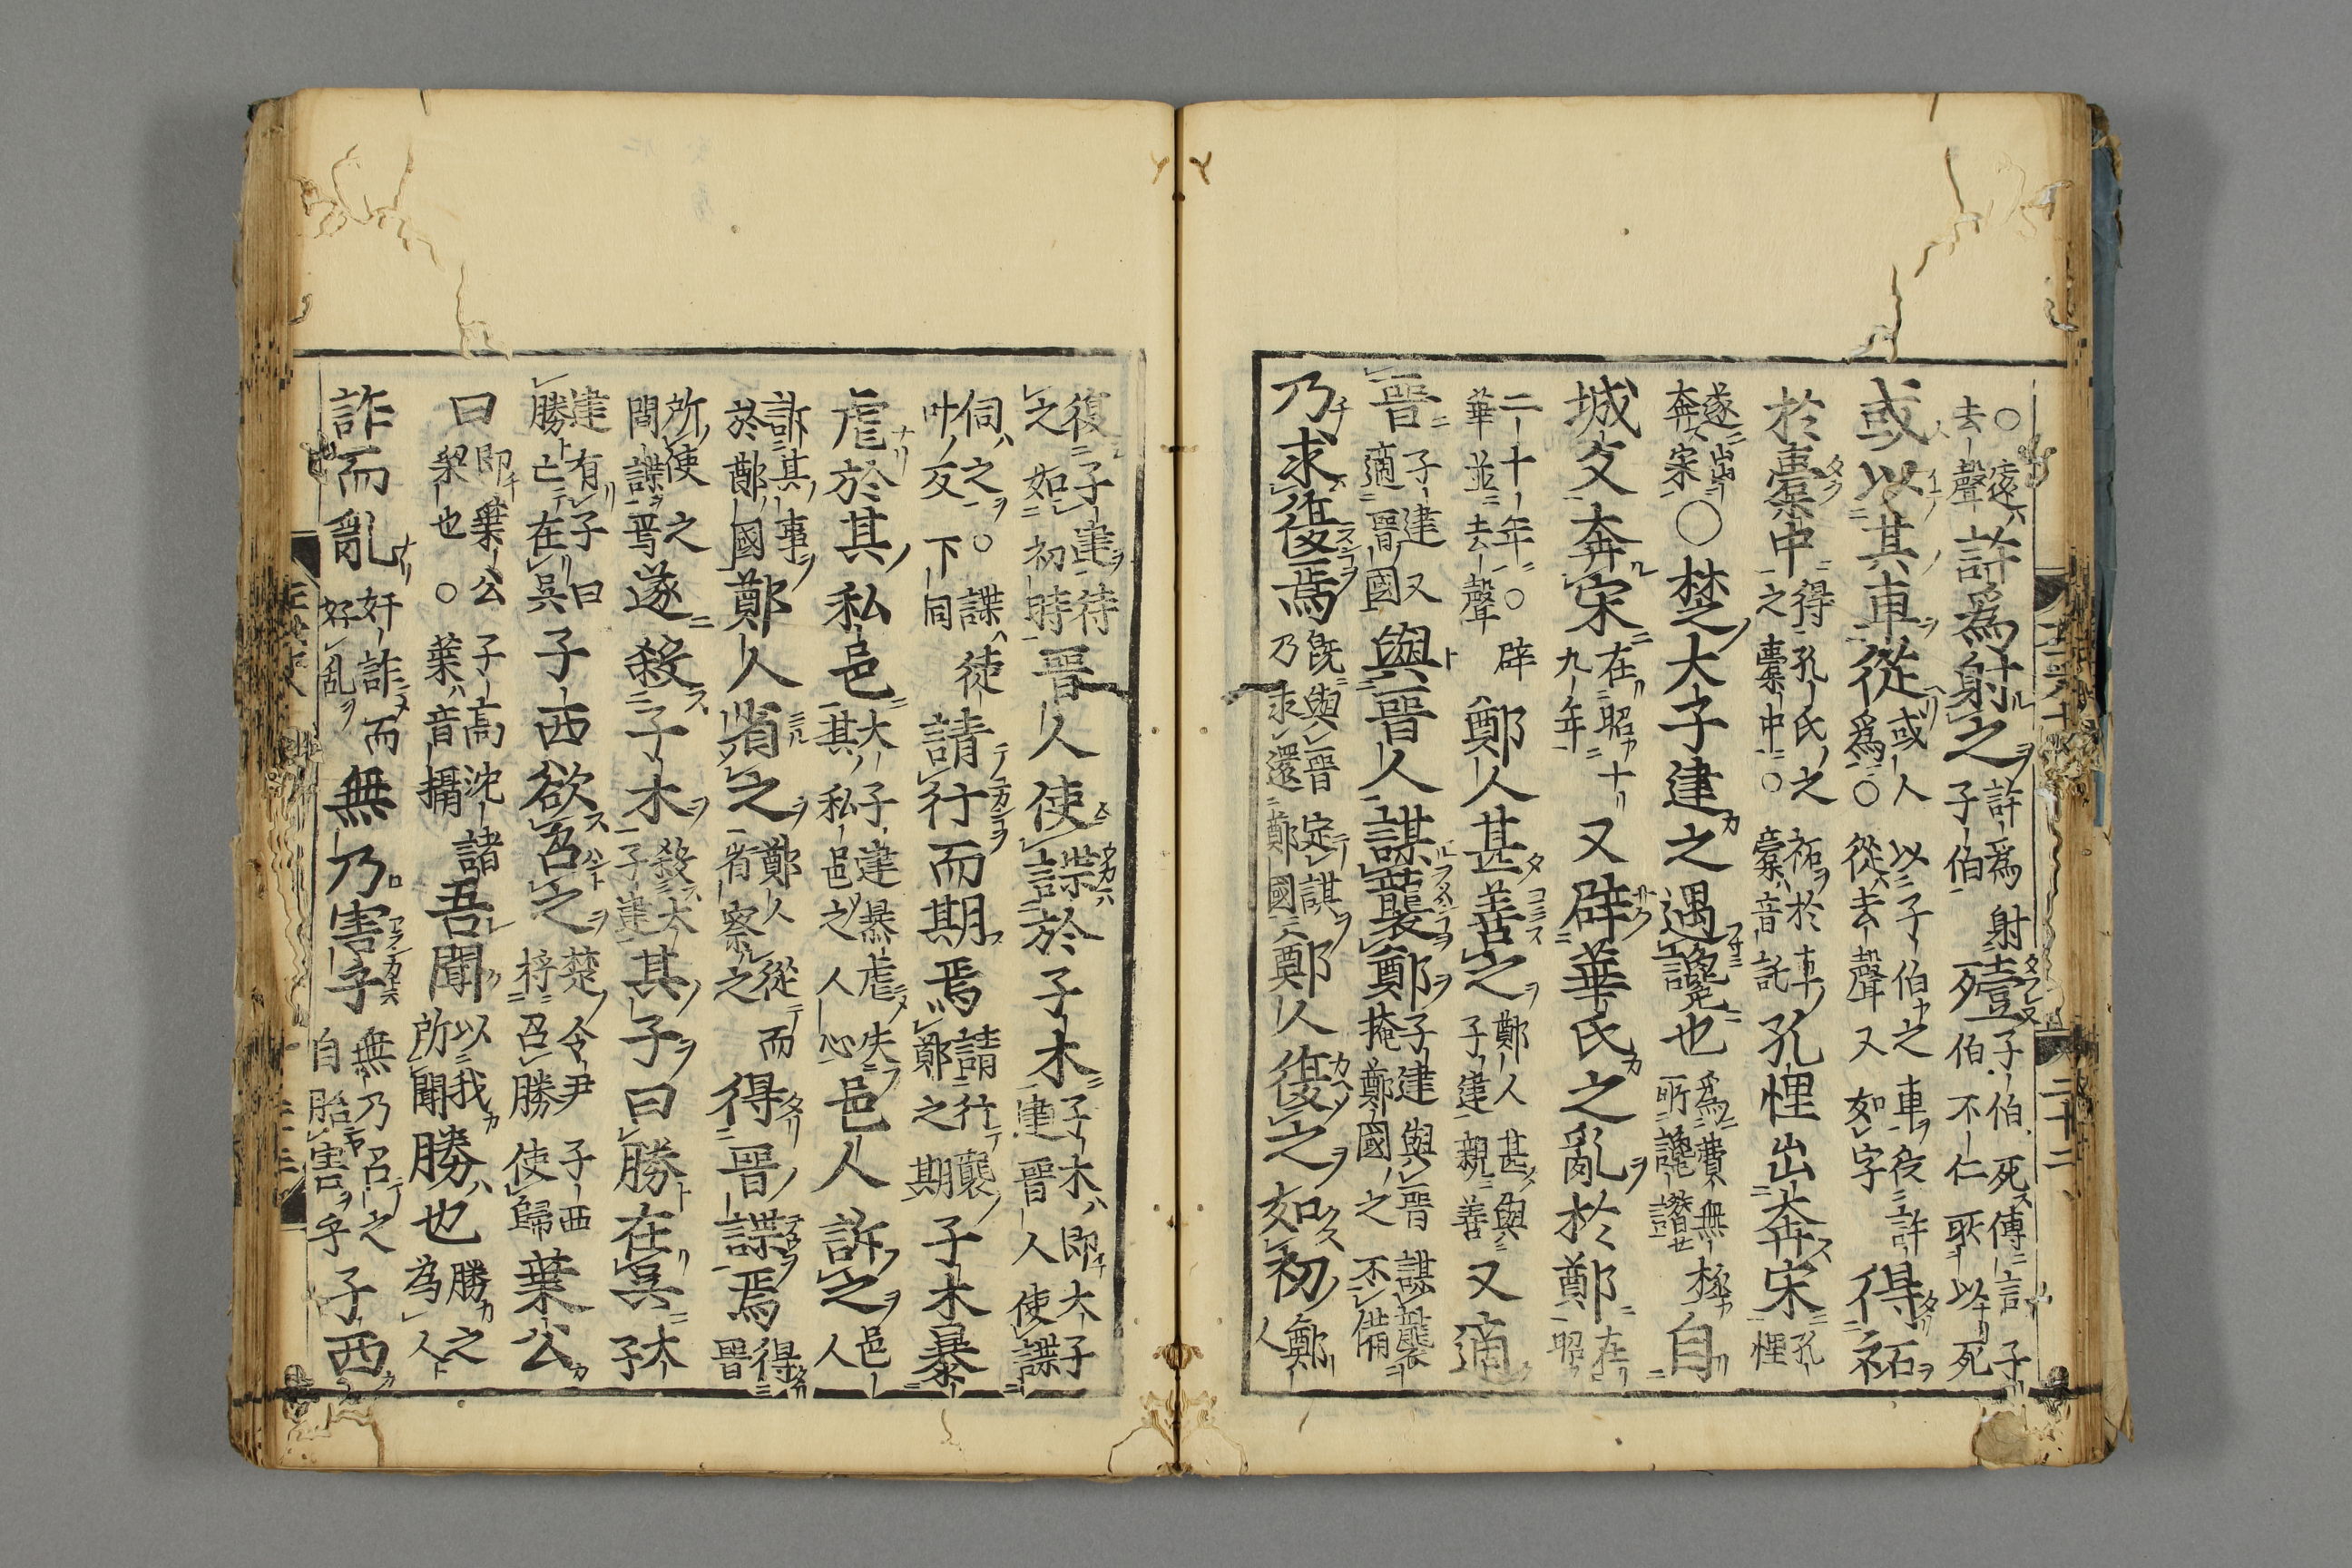 ○遠去聲許爲射之許爲射子伯殪子伯死傳言子伯不仁所以死
或以其車從或人以子伯之車後許爲○從去聲又如字得祏
於橐中得孔氏之祏於車之橐中○橐音託孔悝出奔宋孔悝
遂出奔宋○楚大子建之遇讒也爲費無極所讒譖自
城父奔宋在昭十九年又辟華氏之亂於鄭在昭
二十年○辟華並去聲鄭人甚善之鄭人甚與子建親善又適
晉子建又適晉國與晉人謀襲鄭子建與晉謀襲掩鄭國之不備
乃求復焉既與晉定謀乃求還鄭國鄭人復之如初鄭人
復子建待之如初時晉人使諜於子木子木即太子建晉人使諜
伺之○諜徒叶反下同請行而期焉請行襲鄭之期子木暴
虐於其私邑大子建暴虐其私邑之人失人心邑人訴之邑人
訴其事於鄭國鄭人省之鄭人從而省察之得晉諜焉得晉
所使之間諜焉遂殺子木殺太子建其子曰勝在吳太子
建有子曰勝亡在吳子西欲召之楚令尹子西將召勝使歸葉公
曰即葉公子高沈諸梁也○葉音攝吾聞勝也以我所聞勝之為人
詐而亂奸詐而好亂無乃害乎無乃召之自貽害乎子西